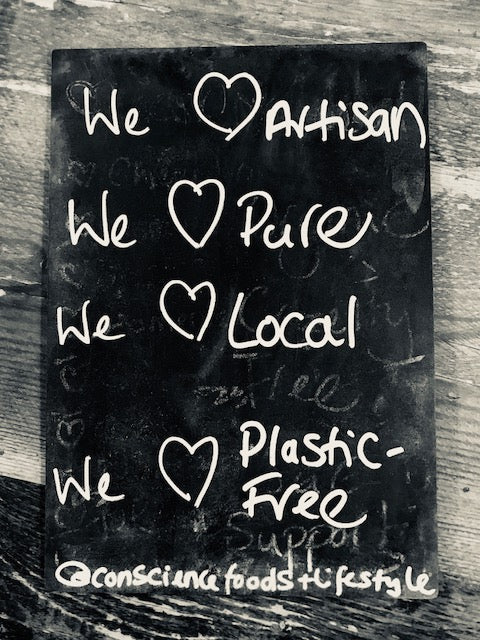 We ♡ Artisan
We ♡ Pure
We ♡ Local
We ♡ Plastic-
Free
Support
@consciencefoods+lifestyle